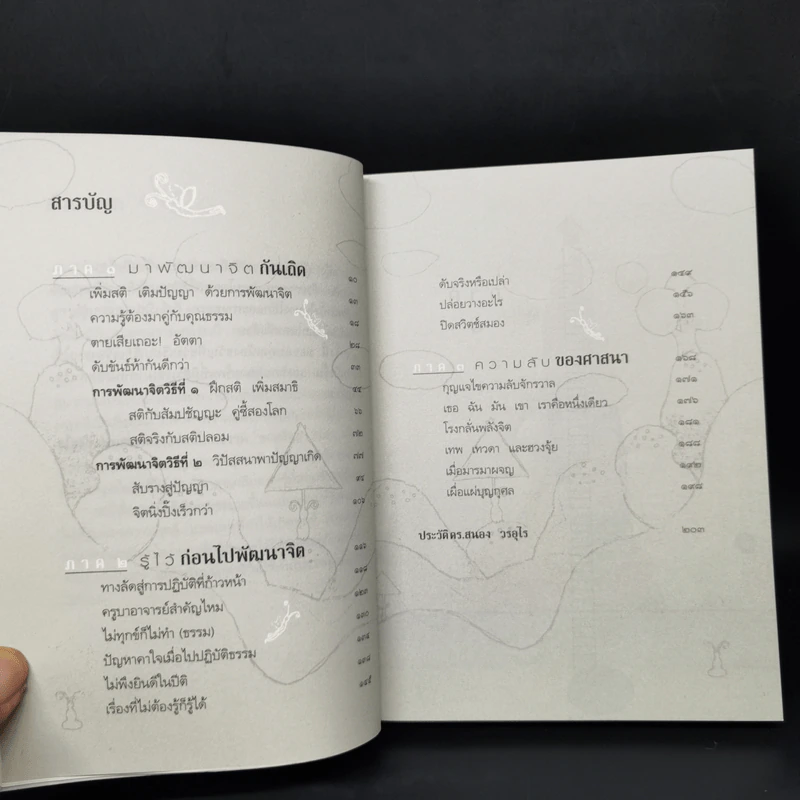 สารบัญ
ภาค ๑ มาพัฒนาจิตกันเถิด ๑๐
เพิ่มสติ เติมปัญญา ด้วยการพัฒนาจิต ๑๓
ความรู้ต้องมาคู่กับคุณธรรม ๑๘
ตายเสียเถอะ! อัตตา ๒๘
ดับขันธ์ห้ากันดีกว่า ๓๓
การพัฒนาจิตวิธีที่ ๑ ฝึกสติ เพิ่มสมาธิ ๔๔
สติกับสัมปชัญญะ คู่ซี้สองโลก ๖๖
สติจริงกับสติปลอม ๗๒
การพัฒนาจิตวิธีที่ ๒ วิปัสสนาพาปัญญาเกิด ๗๗
สับรางสู่ปัญญา
จิตนิ่งปิ๊งเร็วกว่า
ภาค ๒ รู้ไว้ก่อนไปพัฒนาจิต
ทางลัดสู่การปฏิบัติที่ก้าวหน้า ๑๑๘
ครูบาอาจารย์สำคัญไหม ๑๒๓
ไม่ทุกข์ก็ไม่ทำ (ธรรม) ๑๓๐
ปัญหาคาใจเมื่อไปปฏิบัติธรรม ๑๓๔
ไม่พึงยินดีในปีติ ๑๓๘
เรื่องที่ไม่ต้องรู้ก็รู้ได้ ๑๔๕
ดับจริงหรือเปล่า ๑๔๙
ปล่อยวางอะไร ๑๕๖
ปิดสวิตช์สมอง ๑๖๓
ภาค ๓ ความลับของศาสนา ๑๖๘
กุญแจไขความลับจักรวาล ๑๗๑
เธอ ฉัน มัน เขา เราคือหนึ่งเดียว ๑๗๖
โรงกลั่นพลังจิต ๑๘๑
เทพ เทวดา และฮวงจุ้ย ๑๘๘
เมื่อมารมาผจญ ๑๙๒
เผื่อแผ่บุญกุศล ๑๙๘
ประวัติดร.สนอง วรอุไร ๒๐๓